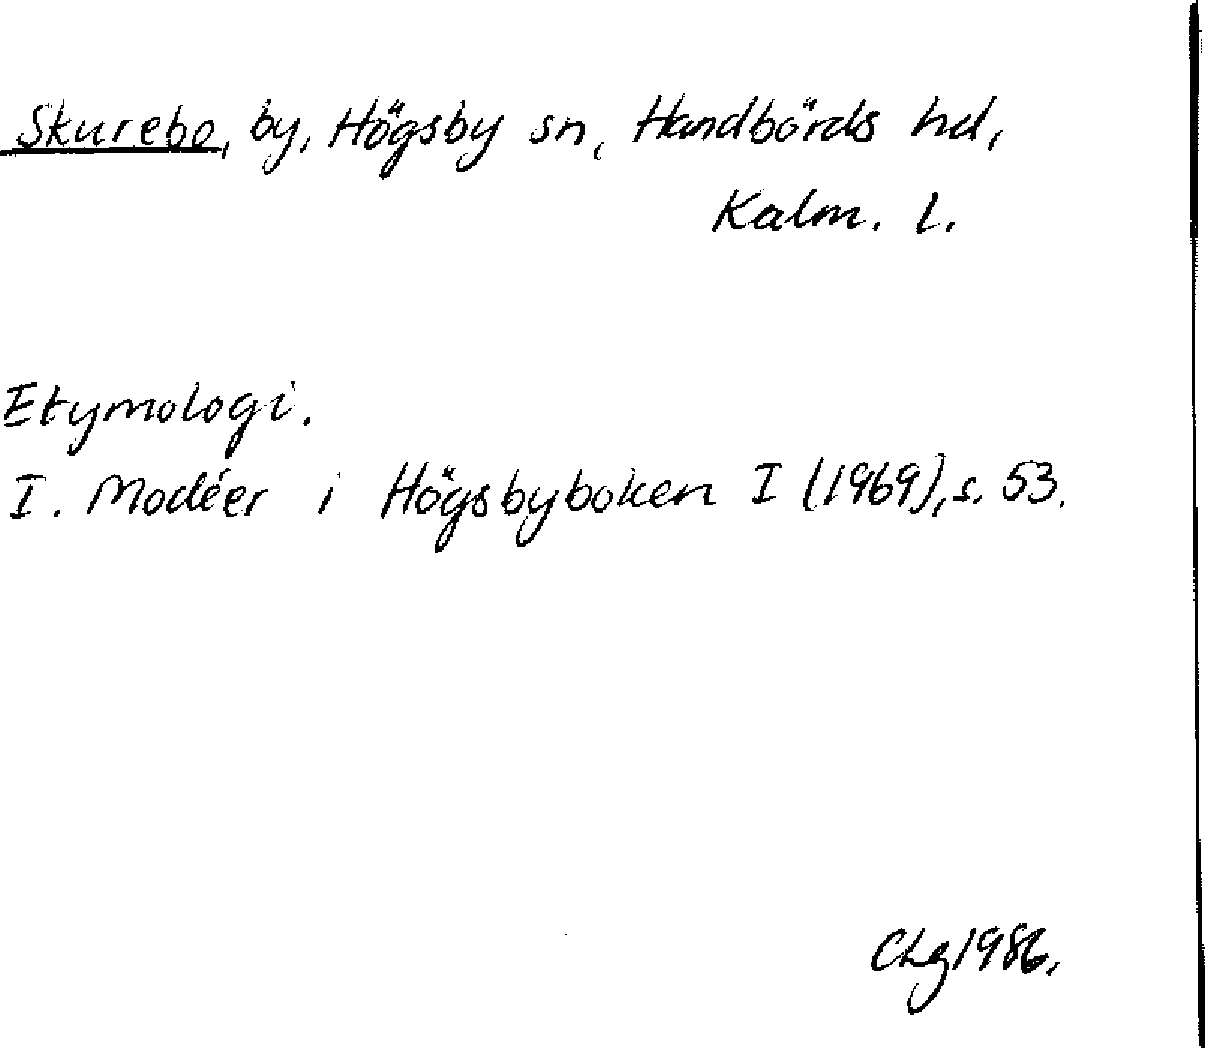 Skurebo, by, Högsby sn, Handbörds hd,
Kalm. l.
Etymologi.
I. Modéer i Högsbyboken I (1969), s. 53.
CLg 1986.